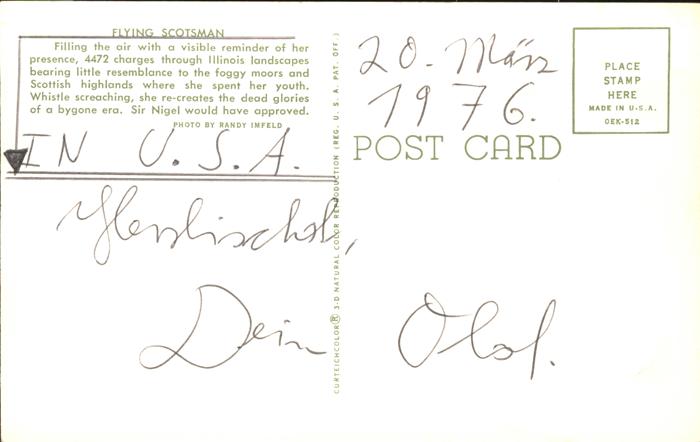 FLYING SCOTSMAN
Filling the air with a visible reminder of her
presence, 4472 charges through Illinois landscapes
bearing little resemblance to the foggy moors and
Scottish highlands where she spent her youth.
Whistle screaching, she re-creates the dead glories
of a bygone era. Sir Nigel would have approved.
PHOTO BY RANDY IMFELD
IN U.S.A.
Herzlichst,
Dein Olaf.
20. März
1976.
POST CARD
PLACE
STAMP
HERE
MADE IN U.S.A.
OEK-512
CURTEICHCOLOR® 3-D NATURAL COLOR REPRODUCTION (REG. U.S.A. PAT. OFF.)